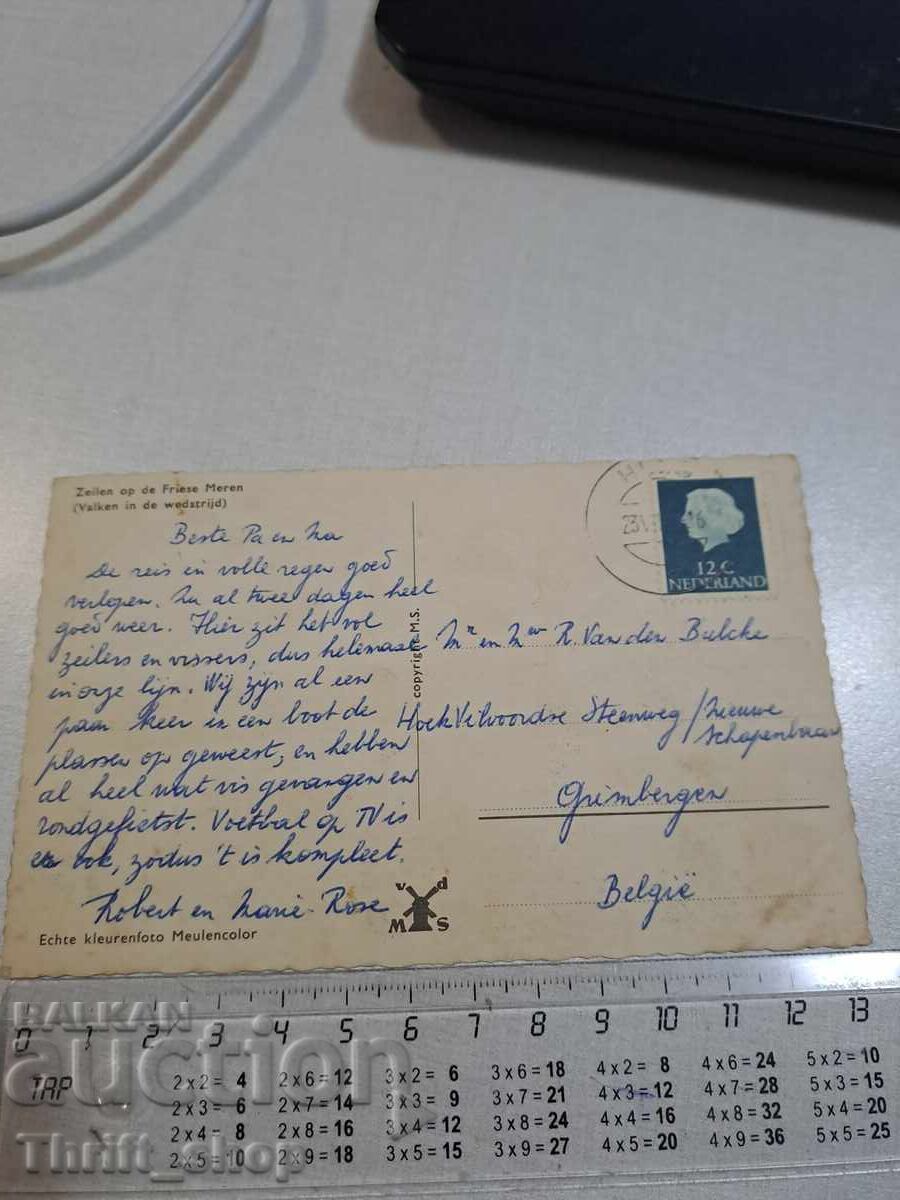 Zeilen op de Friese Meren
(Valken in de wedstrijd)
Beste Pa en Ma
De reis in volle regen goed
verlopen. Nu al twee dagen heel
goed weer. Hier zit het vol
zeilers en vissers, dus helemaal
in onze lijn. Wij zijn al een
paar keer in een boot de
plassen op geweest, en hebben
al heel wat vis gevangen en
rondgefietst. Voetbal op TV is
er ook, zodus 't is kompleet.
Robert en Marie-Rose
Echte kleurenfoto Meulencolor
copyright M.S.
v d
M S
23 VI
16
12 C
NEDERLAND
Mr en Mev R. Van den Bulcke
Hoek Vilvoordse Steenweg / Nieuwe
Schapenbaan
Grimbergen
België
0 1 2 3 4 5 6 7 8 9 10 11 12 13
TAP
2 x 2 = 4 2 x 6 = 12 3 x 2 = 6 3 x 6 = 18 4 x 2 = 8 4 x 6 = 24 5 x 2 = 10
2 x 3 = 6 2 x 7 = 14 3 x 3 = 9 3 x 7 = 21 4 x 3 = 12 4 x 7 = 28 5 x 3 = 15
2 x 4 = 8 2 x 8 = 16 3 x 4 = 12 3 x 8 = 24 4 x 4 = 16 4 x 8 = 32 5 x 4 = 20
2 x 5 = 10 2 x 9 = 18 3 x 5 = 15 3 x 9 = 27 4 x 5 = 20 4 x 9 = 36 5 x 5 = 25
BALKAN
auction
Thrift_shop